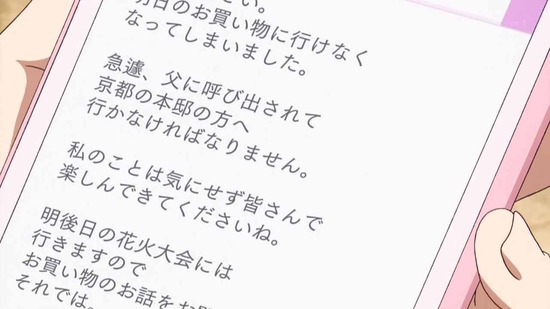 明日のお買い物に行けなく
なってしまいました。
急遽、父に呼び出されて
京都の本邸の方へ
行かなければなりません。
私のことは気にせず皆さんで
楽しんできてくださいね。
明後日の花火大会には
行きますので
お買い物のお話をお
それでは。